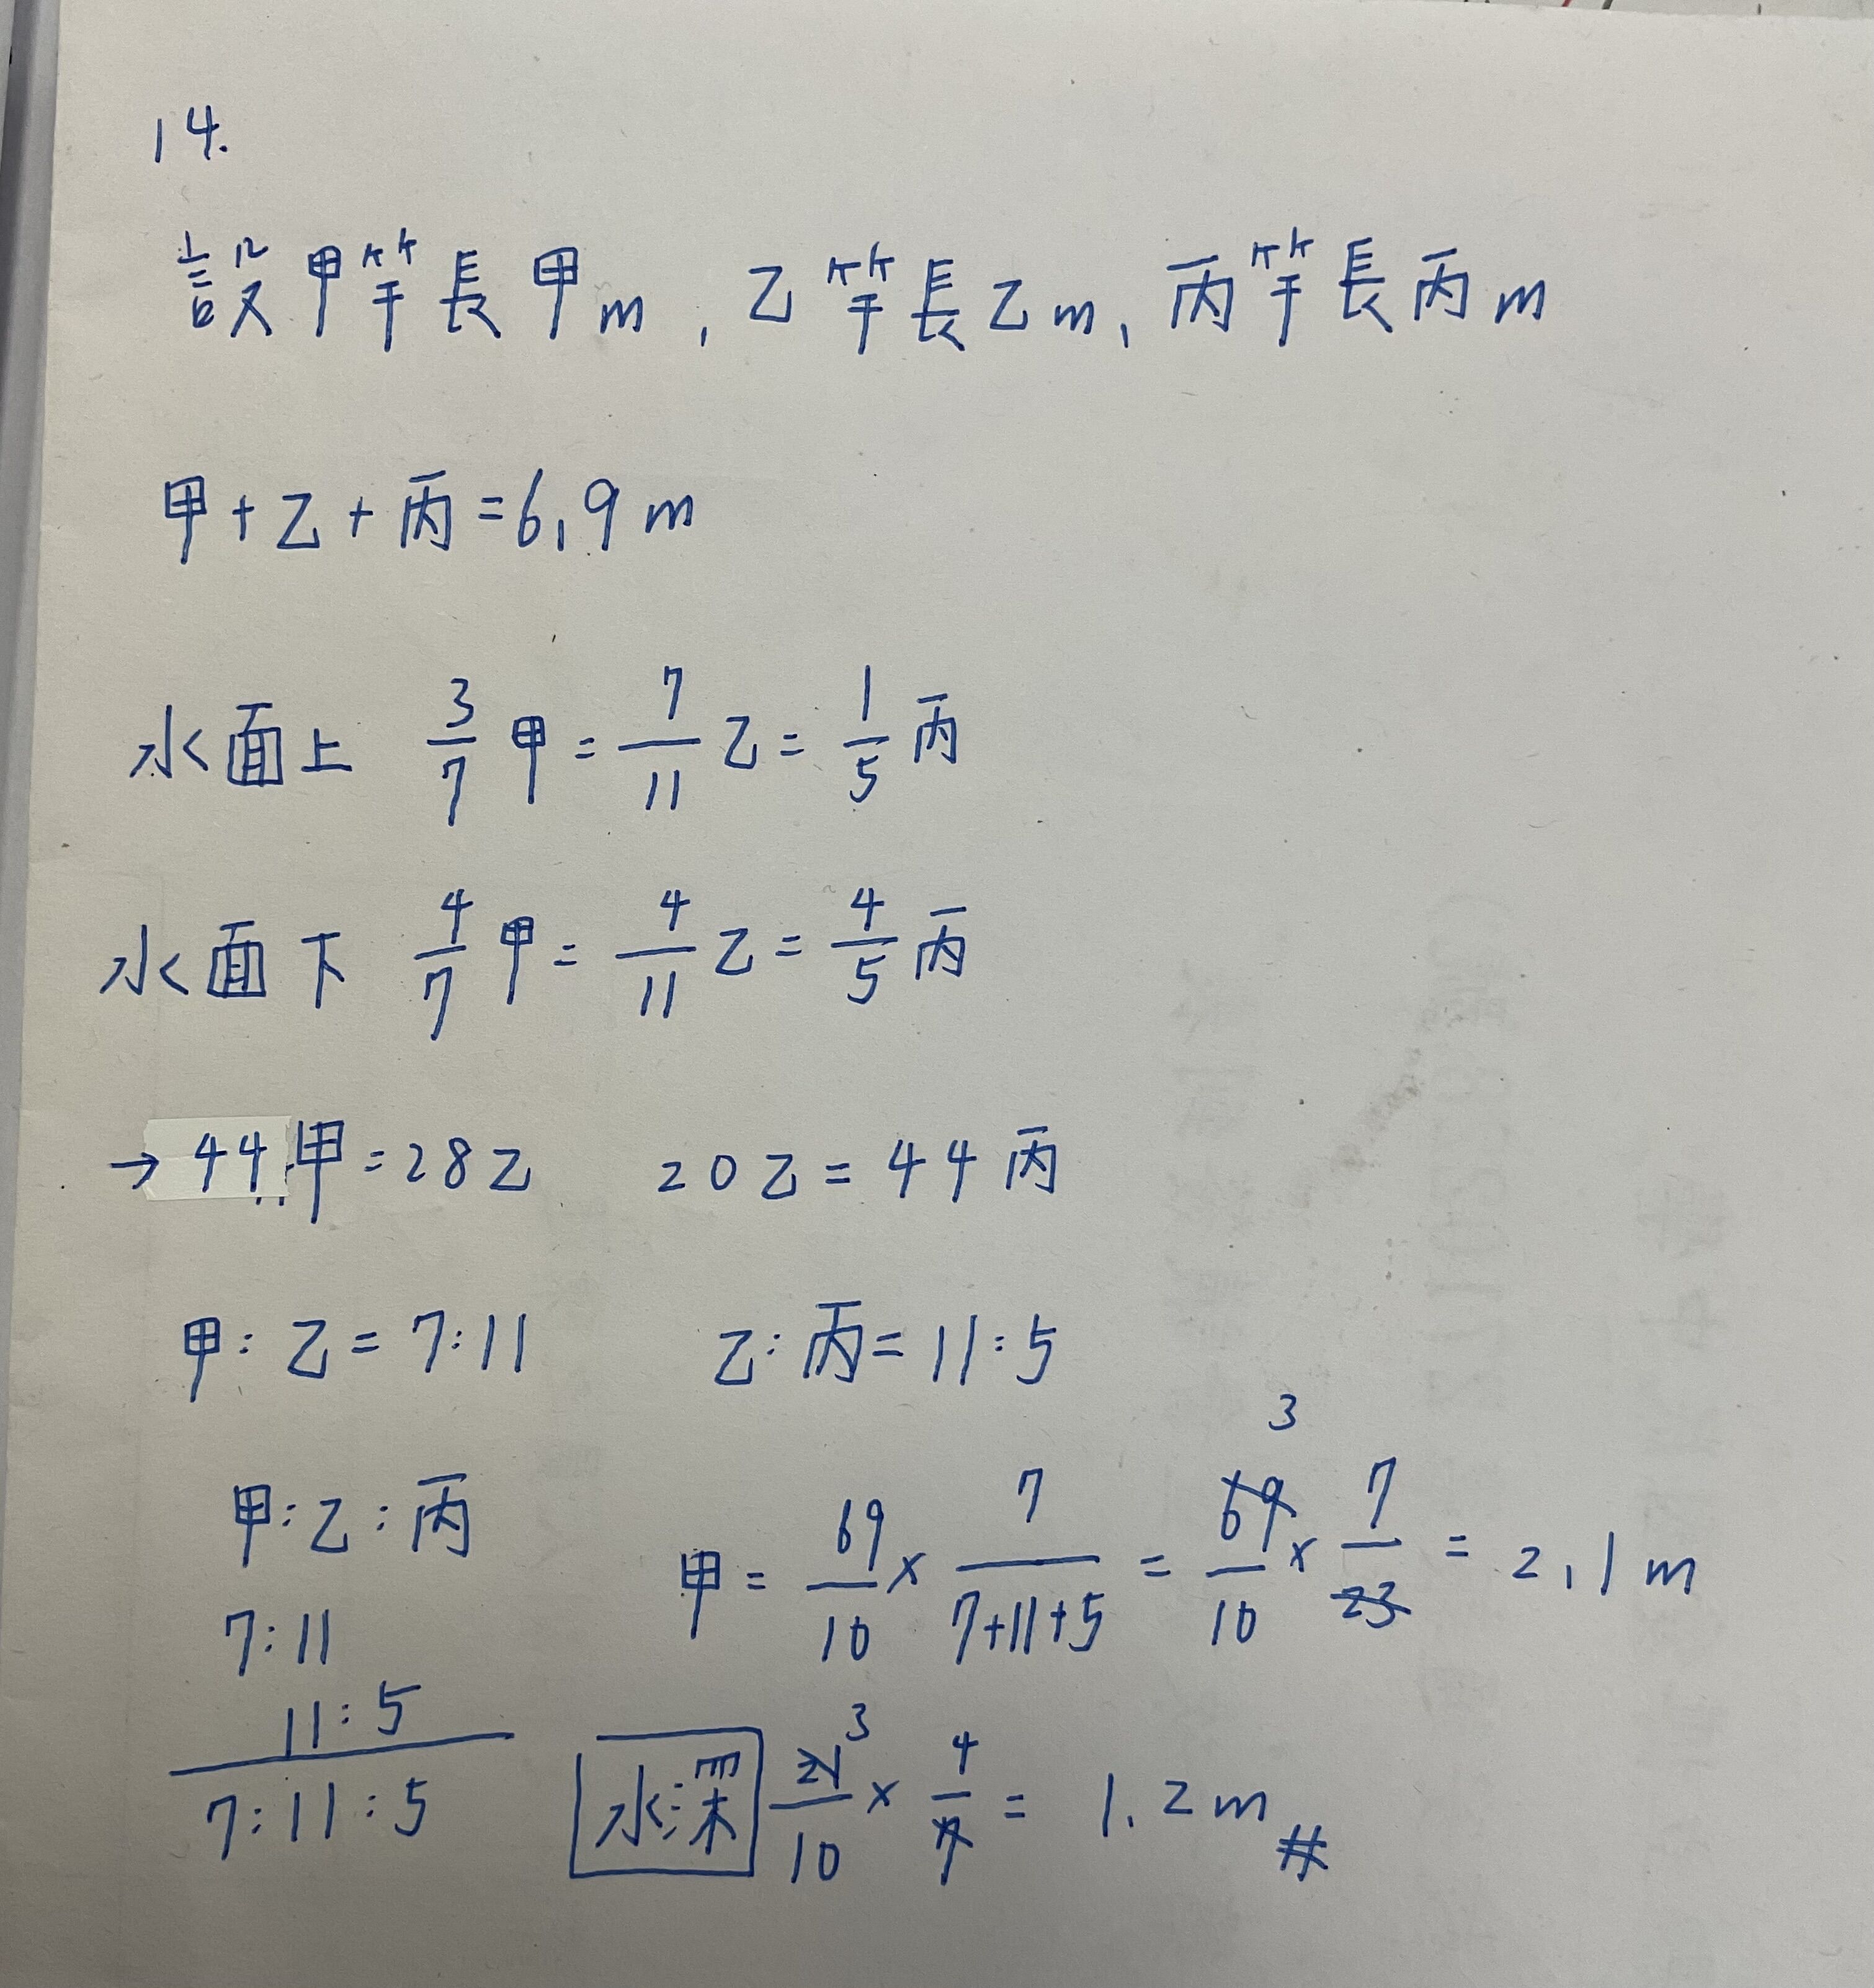 14.
設甲竿長甲m,乙竿長乙m,丙竿長丙m
甲+乙+丙=6.9m
水面上 3/7 甲 = 7/11 乙 = 1/5 丙
水面下 4/7 甲 = 4/11 乙 = 4/5 丙
→ 44甲=28乙 20乙=44丙
甲:乙=7:11 乙:丙=11:5
甲:乙:丙
7:11
11:5
7:11:5
甲= 69/10 × 7/(7+11+5) = 69/10 × 7/23 = 2.1m
3
水深 21/10 × 4/7 = 1.2m #
3